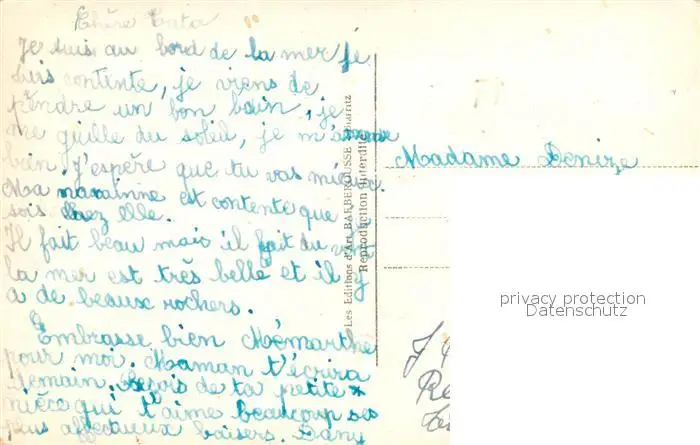 Chère Tata
Je suis au bord de la mer je
suis contente, je viens de
prendre un bon bain, je
me grille du soleil, je m'amuse
bien. J'espère que tu vas mieux.
Ma marainne est contente que je
sois chez elle.
Il fait beau mais il fait du vent
la mer est très belle et il y
a de beaux rochers.
Embrasse bien Mémarthe
pour moi. Maman t'écrira
demain. Reçois de ta petite
nièce qui t'aime beaucoup ses
plus affectueux baisers. Dany
Les Editions d'Art BARBEROUSSE Biarritz
Reproduction interdite
Madame Denize
privacy protection
Datenschutz